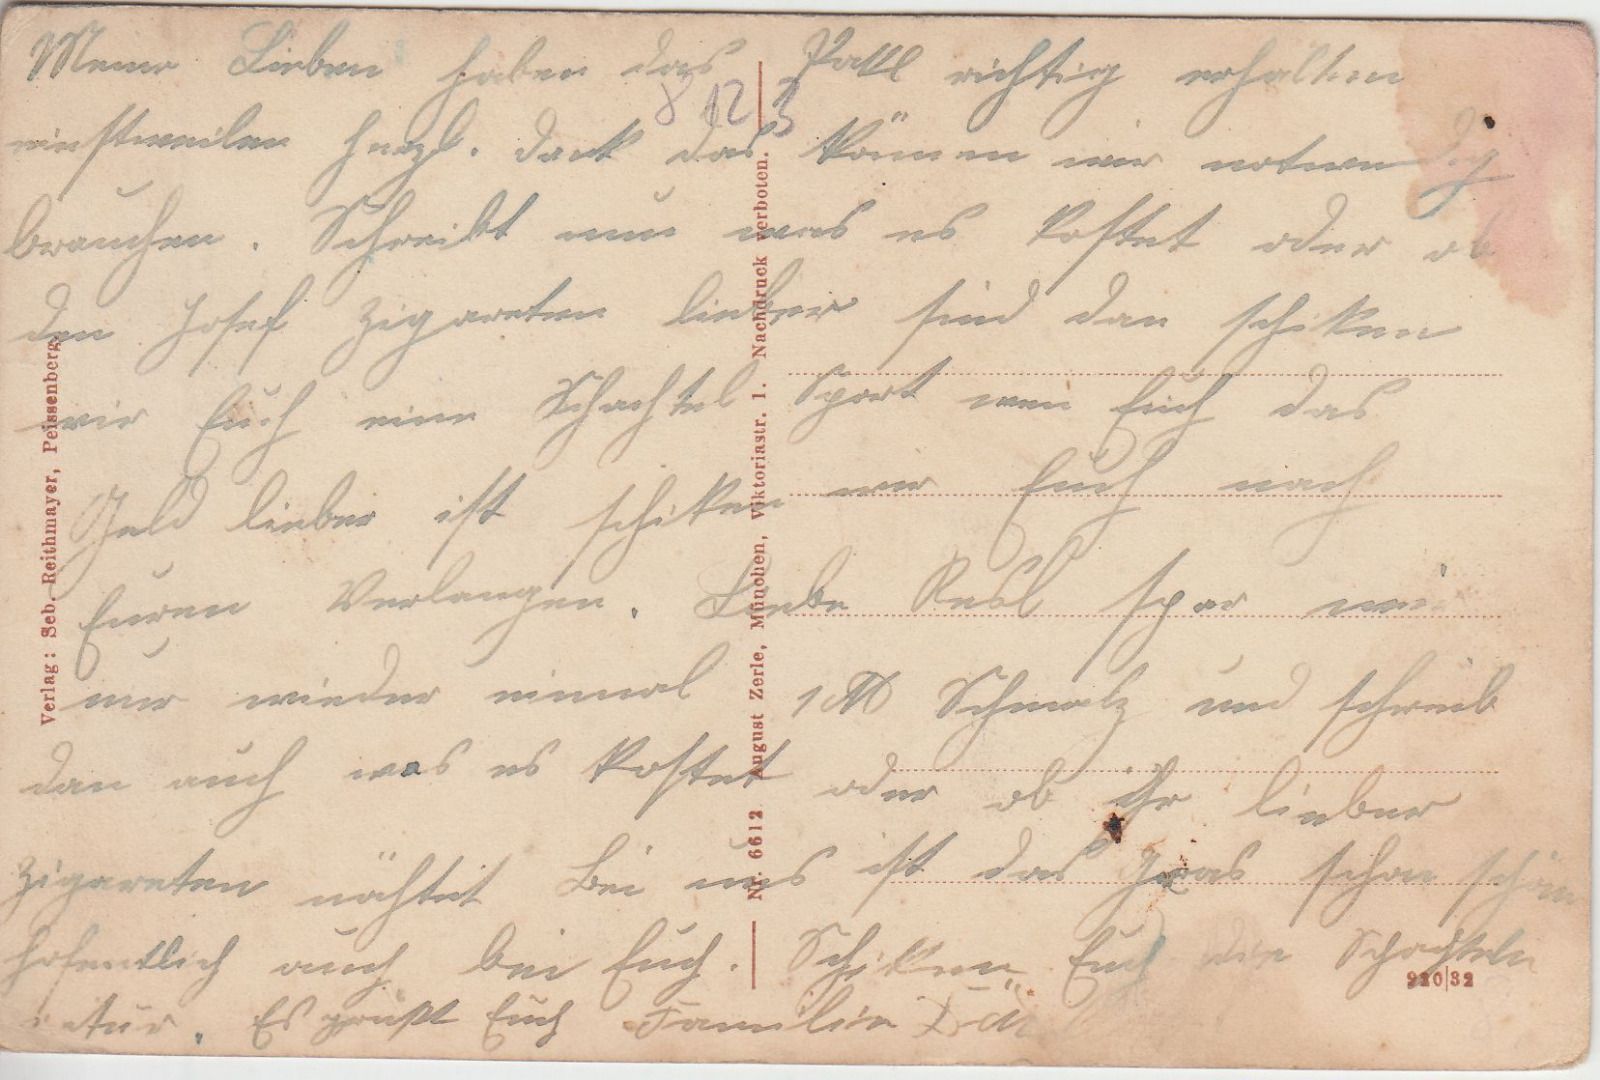 Meine Lieben haben das Pakl richtig erhalten
8 12 3
einstweilen herzl. dank das können wir notwendig
brauchen. Schreibt nun was es kostet oder ob
den Josef Zigareten lieber sind dan schiken
wir Euch eine Schachtel Sport wen Euch das
Geld lieber ist schiken wir Euch nach
Euren Verlangen. Liebe Resl spar mir
nur wieder einmal 1 ℔ Schmalz und schreib
dan auch was es kostet oder ob ihr lieber
Zigareten nähtet Bei uns ist das Gras schon schön
hofentlich auch bei Euch. Schiken Euch die Schachteln
retur. Es grüßt Euch Familie
Verlag: Seb. Reithmayer, Peissenberg.
Nr. 6612 August Zerle, München, Viktoriastr. 1. Nachdruck verboten.
920/32